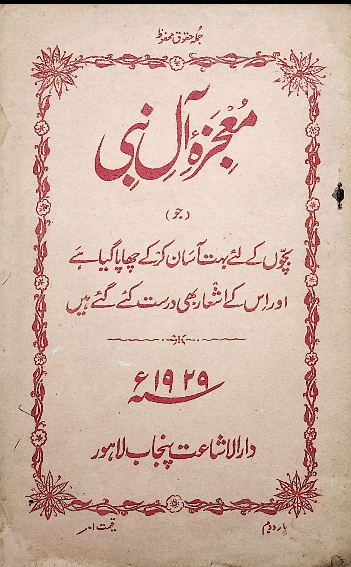 جملہ حقوق محفوظ
معجزۂ آلِ نبی
(جو)
بچّوں کے لئے بہت آسان کر کے چھاپا گیا ہَے
اور اس کے اشعار بھی درست کئے گئے ہیں
سنہ ۱۹۲۹ء
دارالاشاعت پنجاب لاہور
بار دوم
قیمت ۱ر